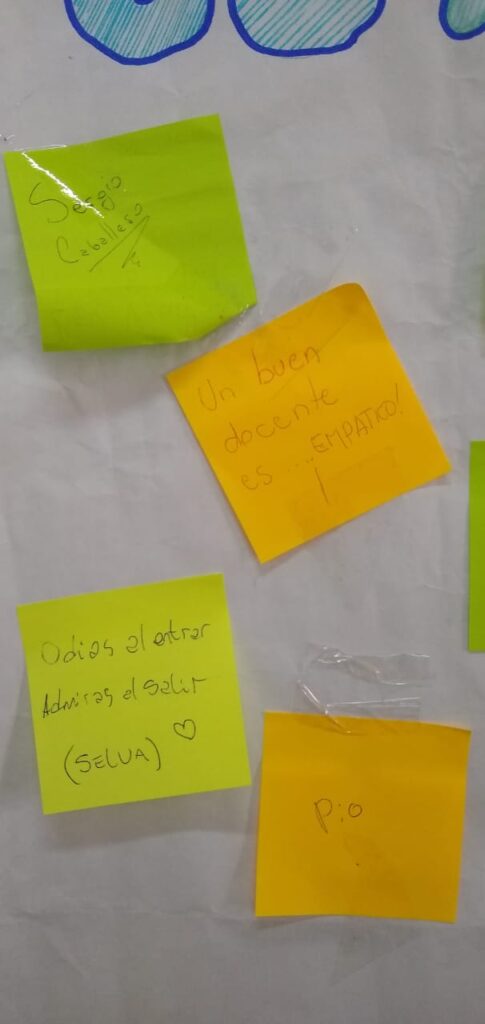 Sergio
Caballero
Un buen
docente
es .... EMPATICO!
Odias al entrar
Admiras al salir
(SELVA) ♡
Pio